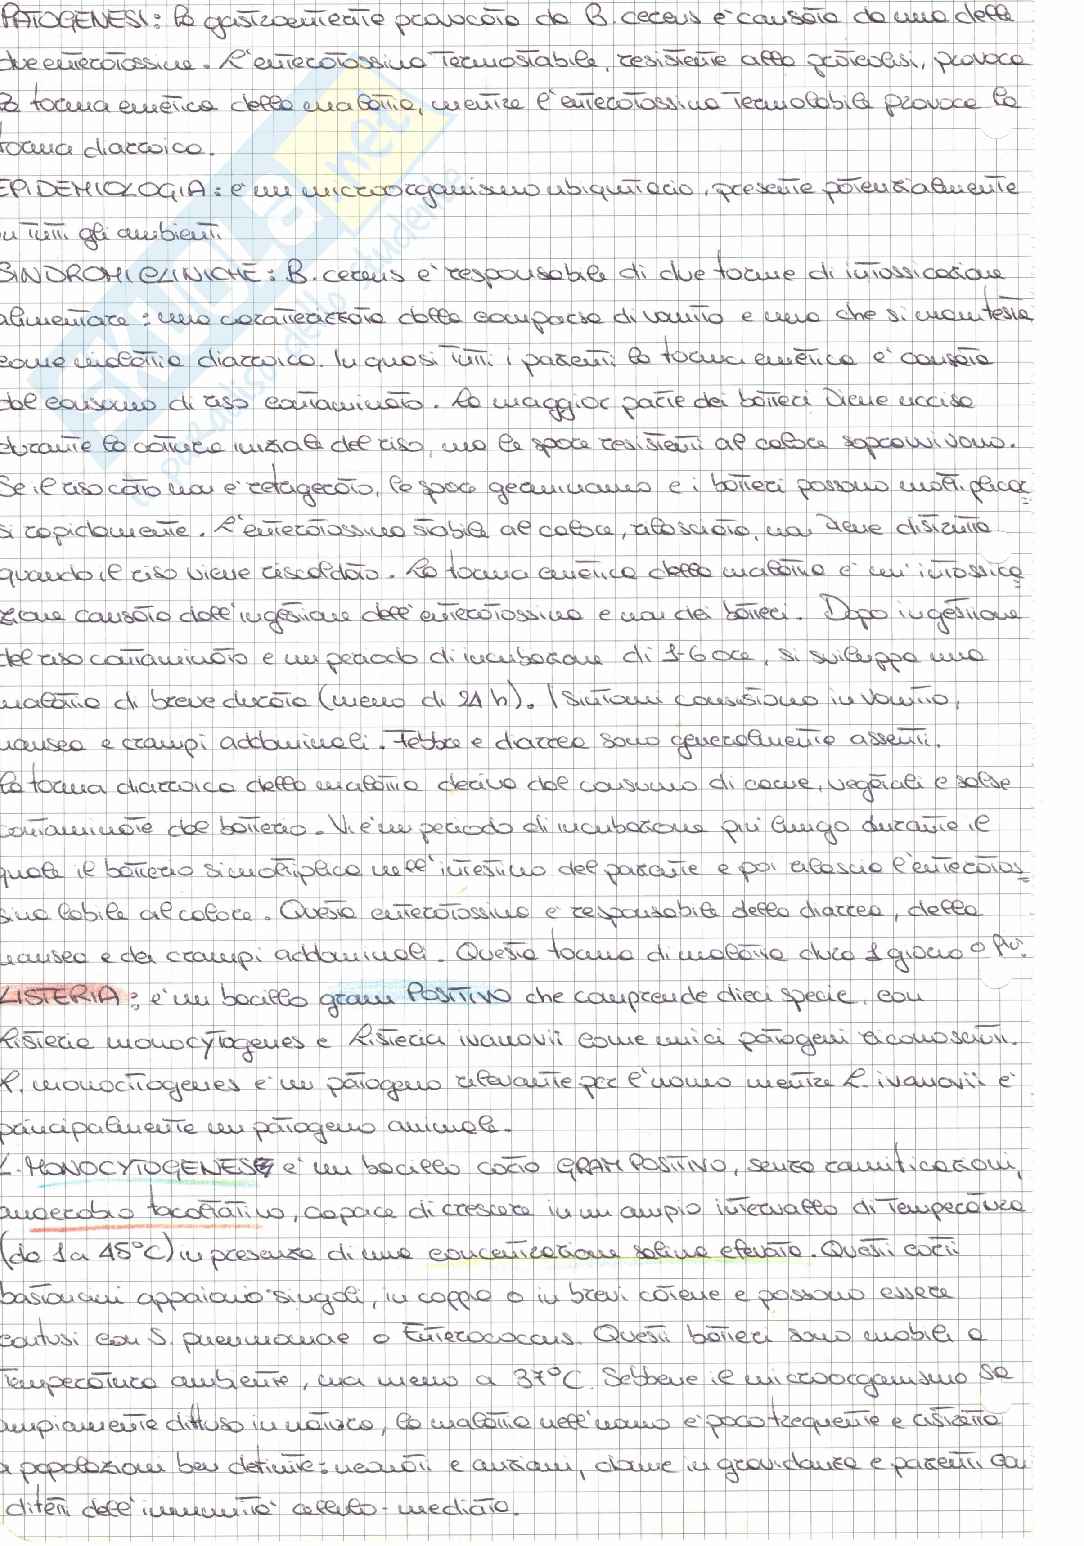 PATOGENESI: la gastroenterite provocata da B. cereus è causata da una delle
due enterotossine. L'enterotossina termostabile, resistente alla proteolisi, provoca
la forma emetica della malattia, mentre l'enterotossina termolabile provoca la
forma diarroica.
EPIDEMIOLOGIA: è un microorganismo ubiquitario, presente potenzialmente
in tutti gli ambienti.
SINDROMI CLINICHE: B. cereus è responsabile di due forme di intossicazione
alimentare: una caratterizzata dalla comparsa di vomito e una che si manifesta
come malattia diarroica. In quasi tutti i pazienti la forma emetica è causata
dal consumo di riso contaminato. La maggior parte dei batteri viene uccisa
durante la cottura iniziale del riso, ma le spore resistenti al calore sopravvivono.
Se il riso cotto non è refrigerato, le spore germinano e i batteri possono moltiplicar=
si rapidamente. L'enterotossina stabile al calore, rilasciata, non viene distrutta
quando il riso viene riscaldato. La forma emetica della malattia è un'intossica=
zione causata dall'ingestione dell'enterotossina e non dei batteri. Dopo ingestione
del riso contaminato e un periodo di incubazione di 1-6 ore, si sviluppa una
malattia di breve durata (meno di 24 h). I sintomi consistono in vomito,
nausea e crampi addominali. Febbre e diarrea sono generalmente assenti.
La forma diarroica della malattia deriva dal consumo di carne, vegetali e salse
contaminate dal batterio. Vi è un periodo di incubazione più lungo durante il
quale il batterio si moltiplica nell'intestino del paziente e poi rilascia l'enterotos=
sina labile al calore. Questa enterotossina è responsabile della diarrea, della
nausea e dei crampi addominali. Questa forma di malattia dura 1 giorno o più.
LISTERIA: è un bacillo gram POSITIVO che comprende dieci specie, con
Listeria monocytogenes e Listeria ivanovii come unici patogeni riconosciuti.
L. monocitogenes è un patogeno rilevante per l'uomo mentre L. ivanovii è
principalmente un patogeno animale.
L. MONOCYTOGENES è un bacillo corto GRAM POSITIVO, senza ramificazioni,
anaerobio facoltativo, capace di crescere in un ampio intervallo di temperatura
(da 1 a 45°C) in presenza di una concentrazione salina elevata. Questi corti
bastoncini appaiono singoli, in coppia o in brevi catene e possono essere
confusi con S. pneumoniae o Enterococcus. Questi batteri sono mobili a
temperatura ambiente, ma meno a 37°C. Sebbene il microorganismo sia
ampiamente diffuso in natura, la malattia nell'uomo è poco frequente e ristretta
a popolazioni ben definite: neonati e anziani, donne in gravidanza e pazienti con
difetti dell'immunità cellulo-mediata.
SKUOLA.net
il paradiso dello studente